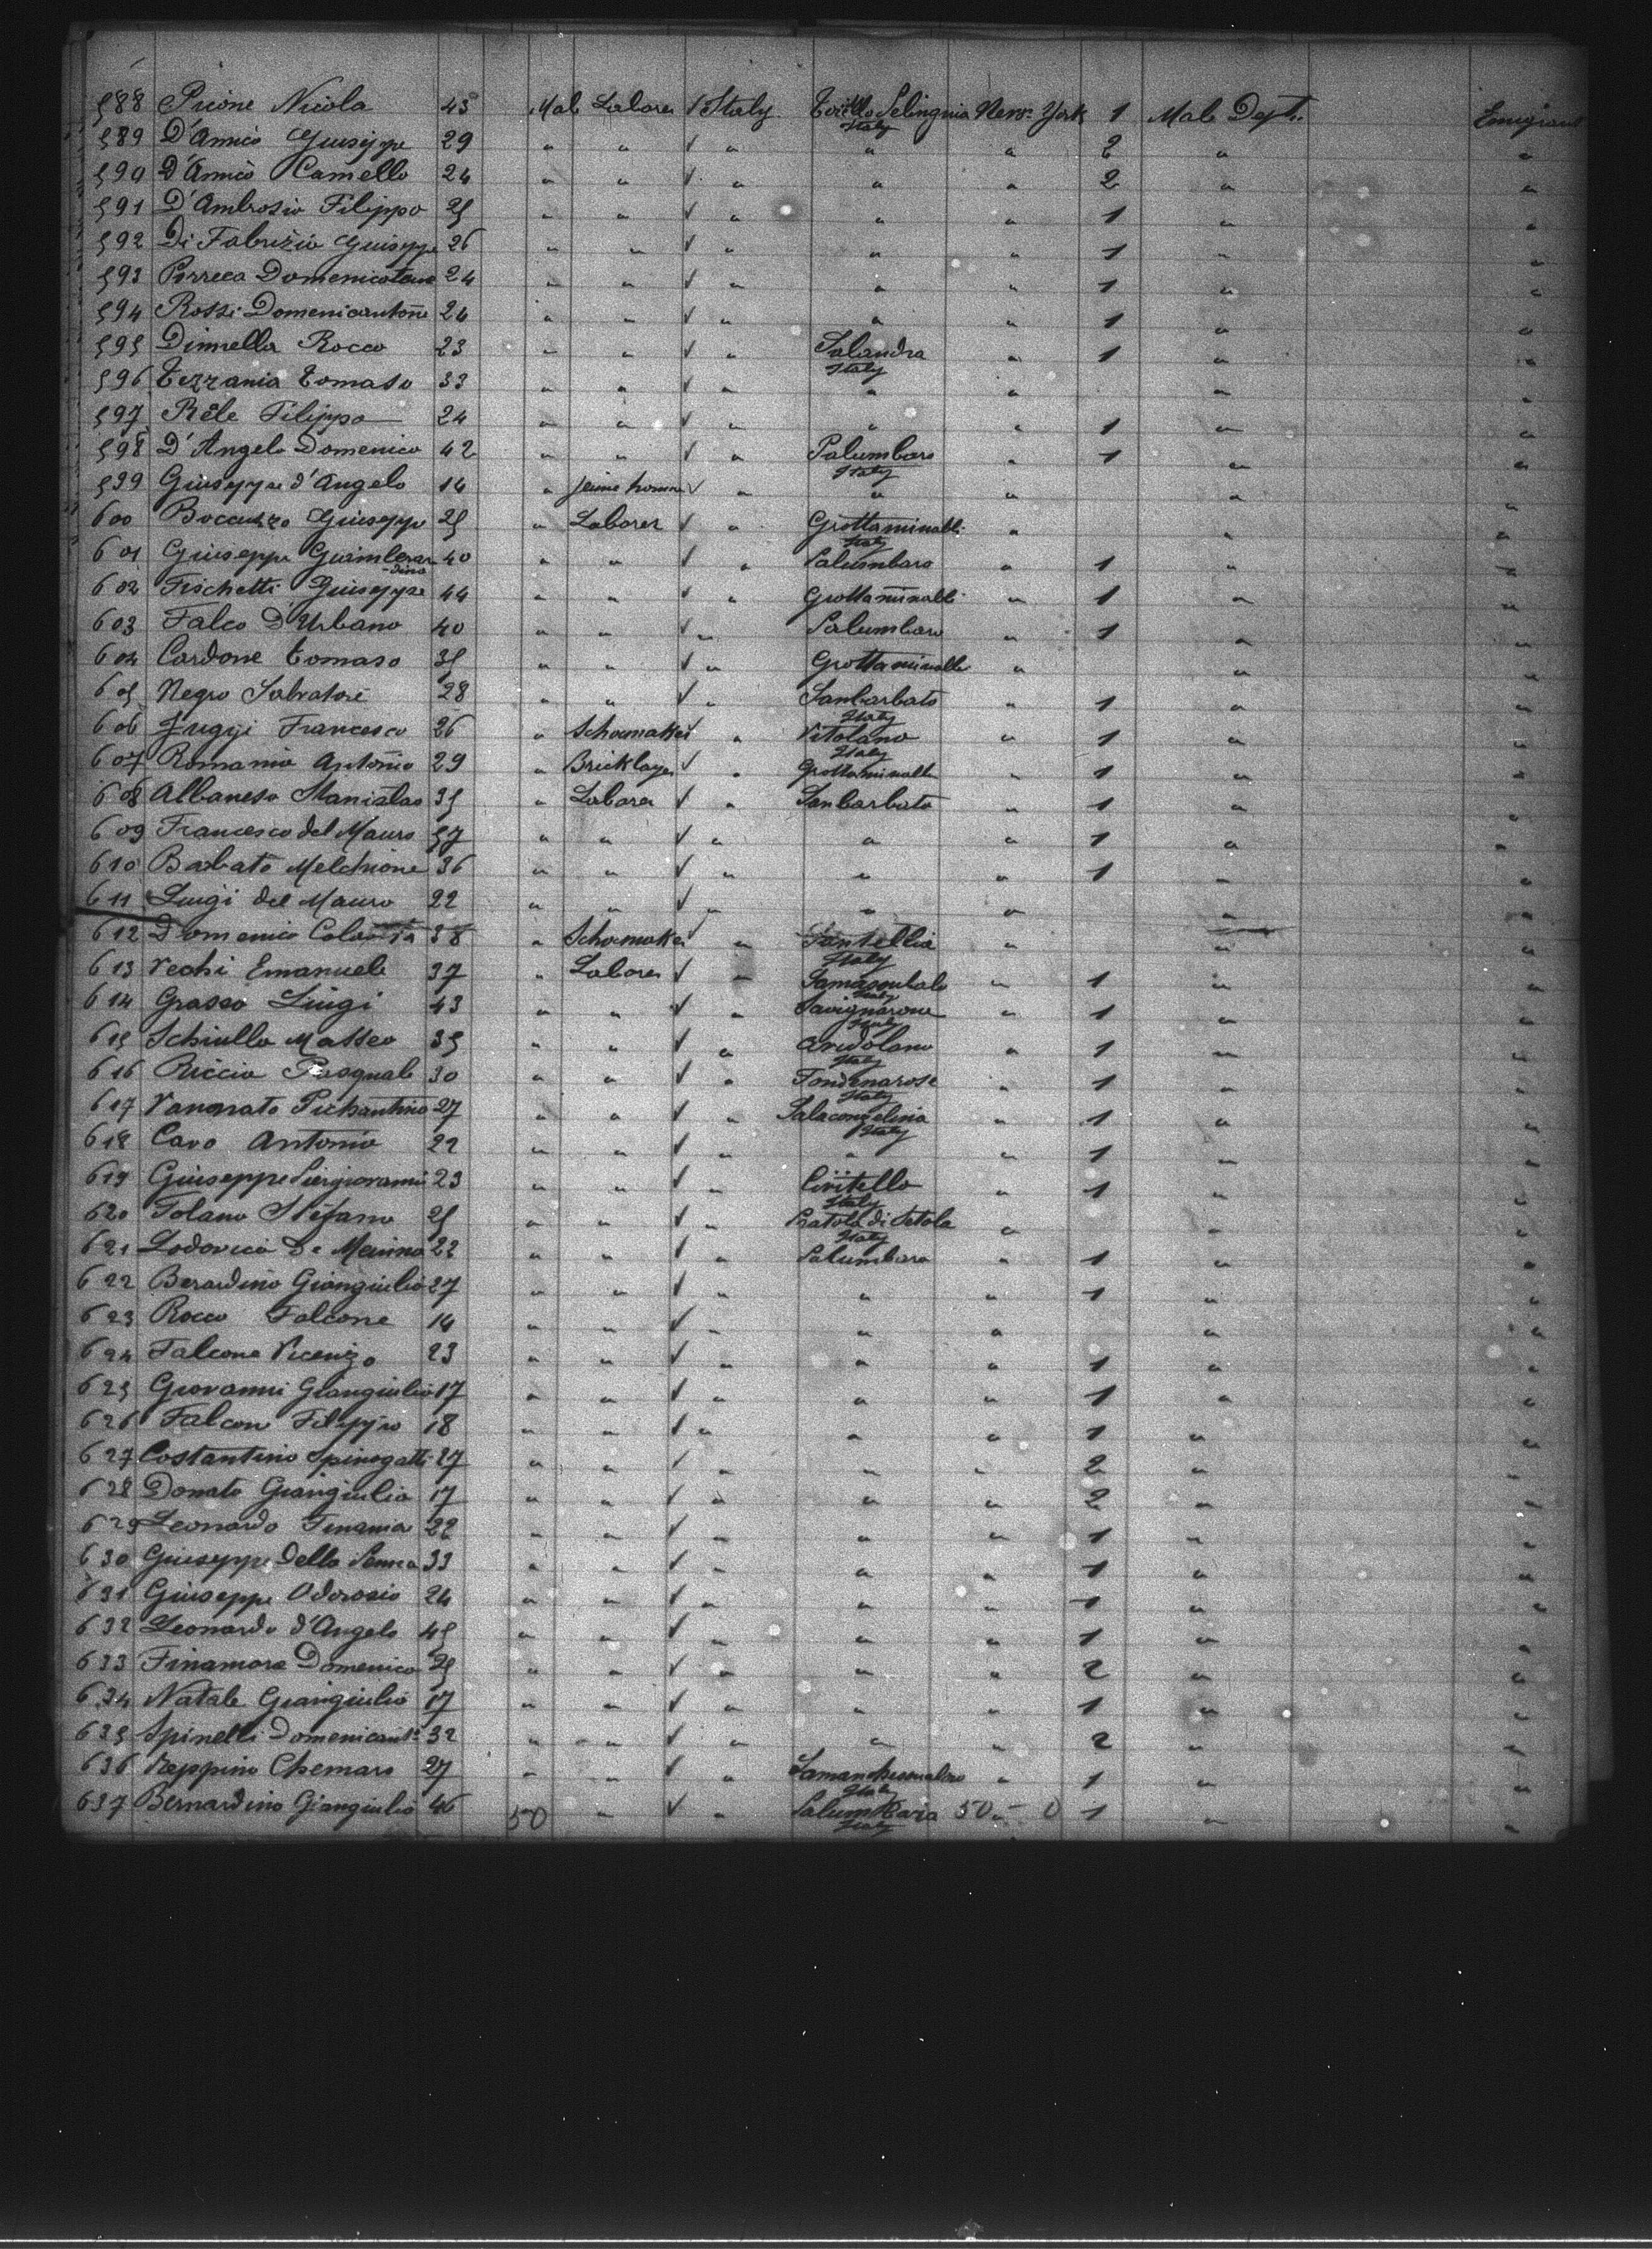 588 Picone Nicola 45 Male Laborer √ Italy New-York 1 Male Dept. Emigrant
Italy
589 D'Amico Guiseppe 29 " " √ " " " 2 " "
590 D'Amico Camello 24 " " √ " " " 2 " "
591 D'Ambrosio Filippo 25 " " √ " " " 1 " "
592 Di Fabrizio Guiseppe 26 " " √ " " " 1 " "
593 Perreca 24 " " √ " " " 1 " "
594 Rossi Domenicantoni 24 " " √ " " " 1 " "
595 Dinnella Rocco 23 " " √ " Salandra " 1 " "
Italy
596 Tezzania Tomaso 33 " " √ " " " " "
597 Rele Filippo 24 " " √ " " " 1 " "
598 D'Angelo Domenico 42 " " √ " Palumbaro " 1 " "
Italy
599 Giuseppe d'Angelo 14 " jeune homme √ " " " " "
600 Boccuzzo Giuseppe 25 " Laborer √ " Grottaminalli " " "
Italy
601 Giuseppe Guimberar 40 " " √ " Palumbaro " 1 " "
-dino
602 Fischetti Giuseppe 44 " " √ " Grottaminalli " 1 " "
603 Falco D'Urbano 40 " " √ " Palumbaro " 1 " "
604 Cardone Tomaso 35 " " √ " Grottaminalli " " "
605 Negro Salvatore 28 " " √ " Sanbarbato " 1 " "
Italy
606 Francesco 26 " Schoemaker √ " Vitolano " 1 " "
Italy
607 Romania Antonio 29 " Bricklayer √ " Grottaminalli " 1 " "
608 Albaneso Stanislao 35 " Laborer √ " Sanbarbato " 1 " "
609 Francesco del Mauro 57 " " √ " " " 1 " "
610 Barbato Melchione 36 " " √ " " " 1 " "
611 Luigi del Mauro 22 " " √ " " " " "
612 Domenico 38 " Schoemaker √ " Santellia " " "
Italy
613 Vechi Emanuele 37 " Laborer √ " " 1 " "
Italy
614 Grasso Luigi 43 " " √ " Savignarone " 1 " "
Italy
615 Schiullo Matteo 35 " " √ " Aridolano " 1 " "
Italy
616 Riccio Pasquale 30 " " √ " Fondenarose " 1 " "
Italy
617 27 " " √ " Salaconzelina " 1 " "
Italy
618 Cavo Antonio 22 " " √ " " " 1 " "
619 Giuseppe Piergiovanni 23 " " √ " Civitello " 1 " "
Italy
620 Tolano Stefano 25 " " √ " Pratola di Setola " " "
Italy
621 Lodovico De Marino 22 " " √ " Palumbaro " 1 " "
622 Berardino Giangiulio 27 " " √ " " " 1 " "
623 Rocco Falcone 14 " " √ " " " " "
624 Falcone Vicenzo 23 " " √ " " " 1 " "
625 Giovanni Giangiulio 17 " " √ " " " 1 " "
626 Falcon Filippo 18 " " √ " " " 1 " "
627 Costantino Spinogatti 27 " " √ " " " 2 " "
628 Donato Giangiulio 17 " " √ " " " 2 " "
629 Leonardo 22 " " √ " " " 1 " "
630 Giuseppe Della Penna 33 " " √ " " " 1 " "
631 Giuseppe Odorosio 24 " " √ " " " 1 " "
632 Leonardo d'Angelo 45 " " √ " " " 1 " "
633 Finamore Domenico 25 " " √ " " " 2 " "
634 Natale Giangiulio 17 " " √ " " " 1 " "
635 Spinelli Domenicant° 32 " " √ " " " 2 " "
636 Zeppino Chemaro 27 " " √ " " 1 " "
Italy
637 Bernardino Giangiulio 46 50 " √ " Palumbaria 50 " 0 1 " "
Italy